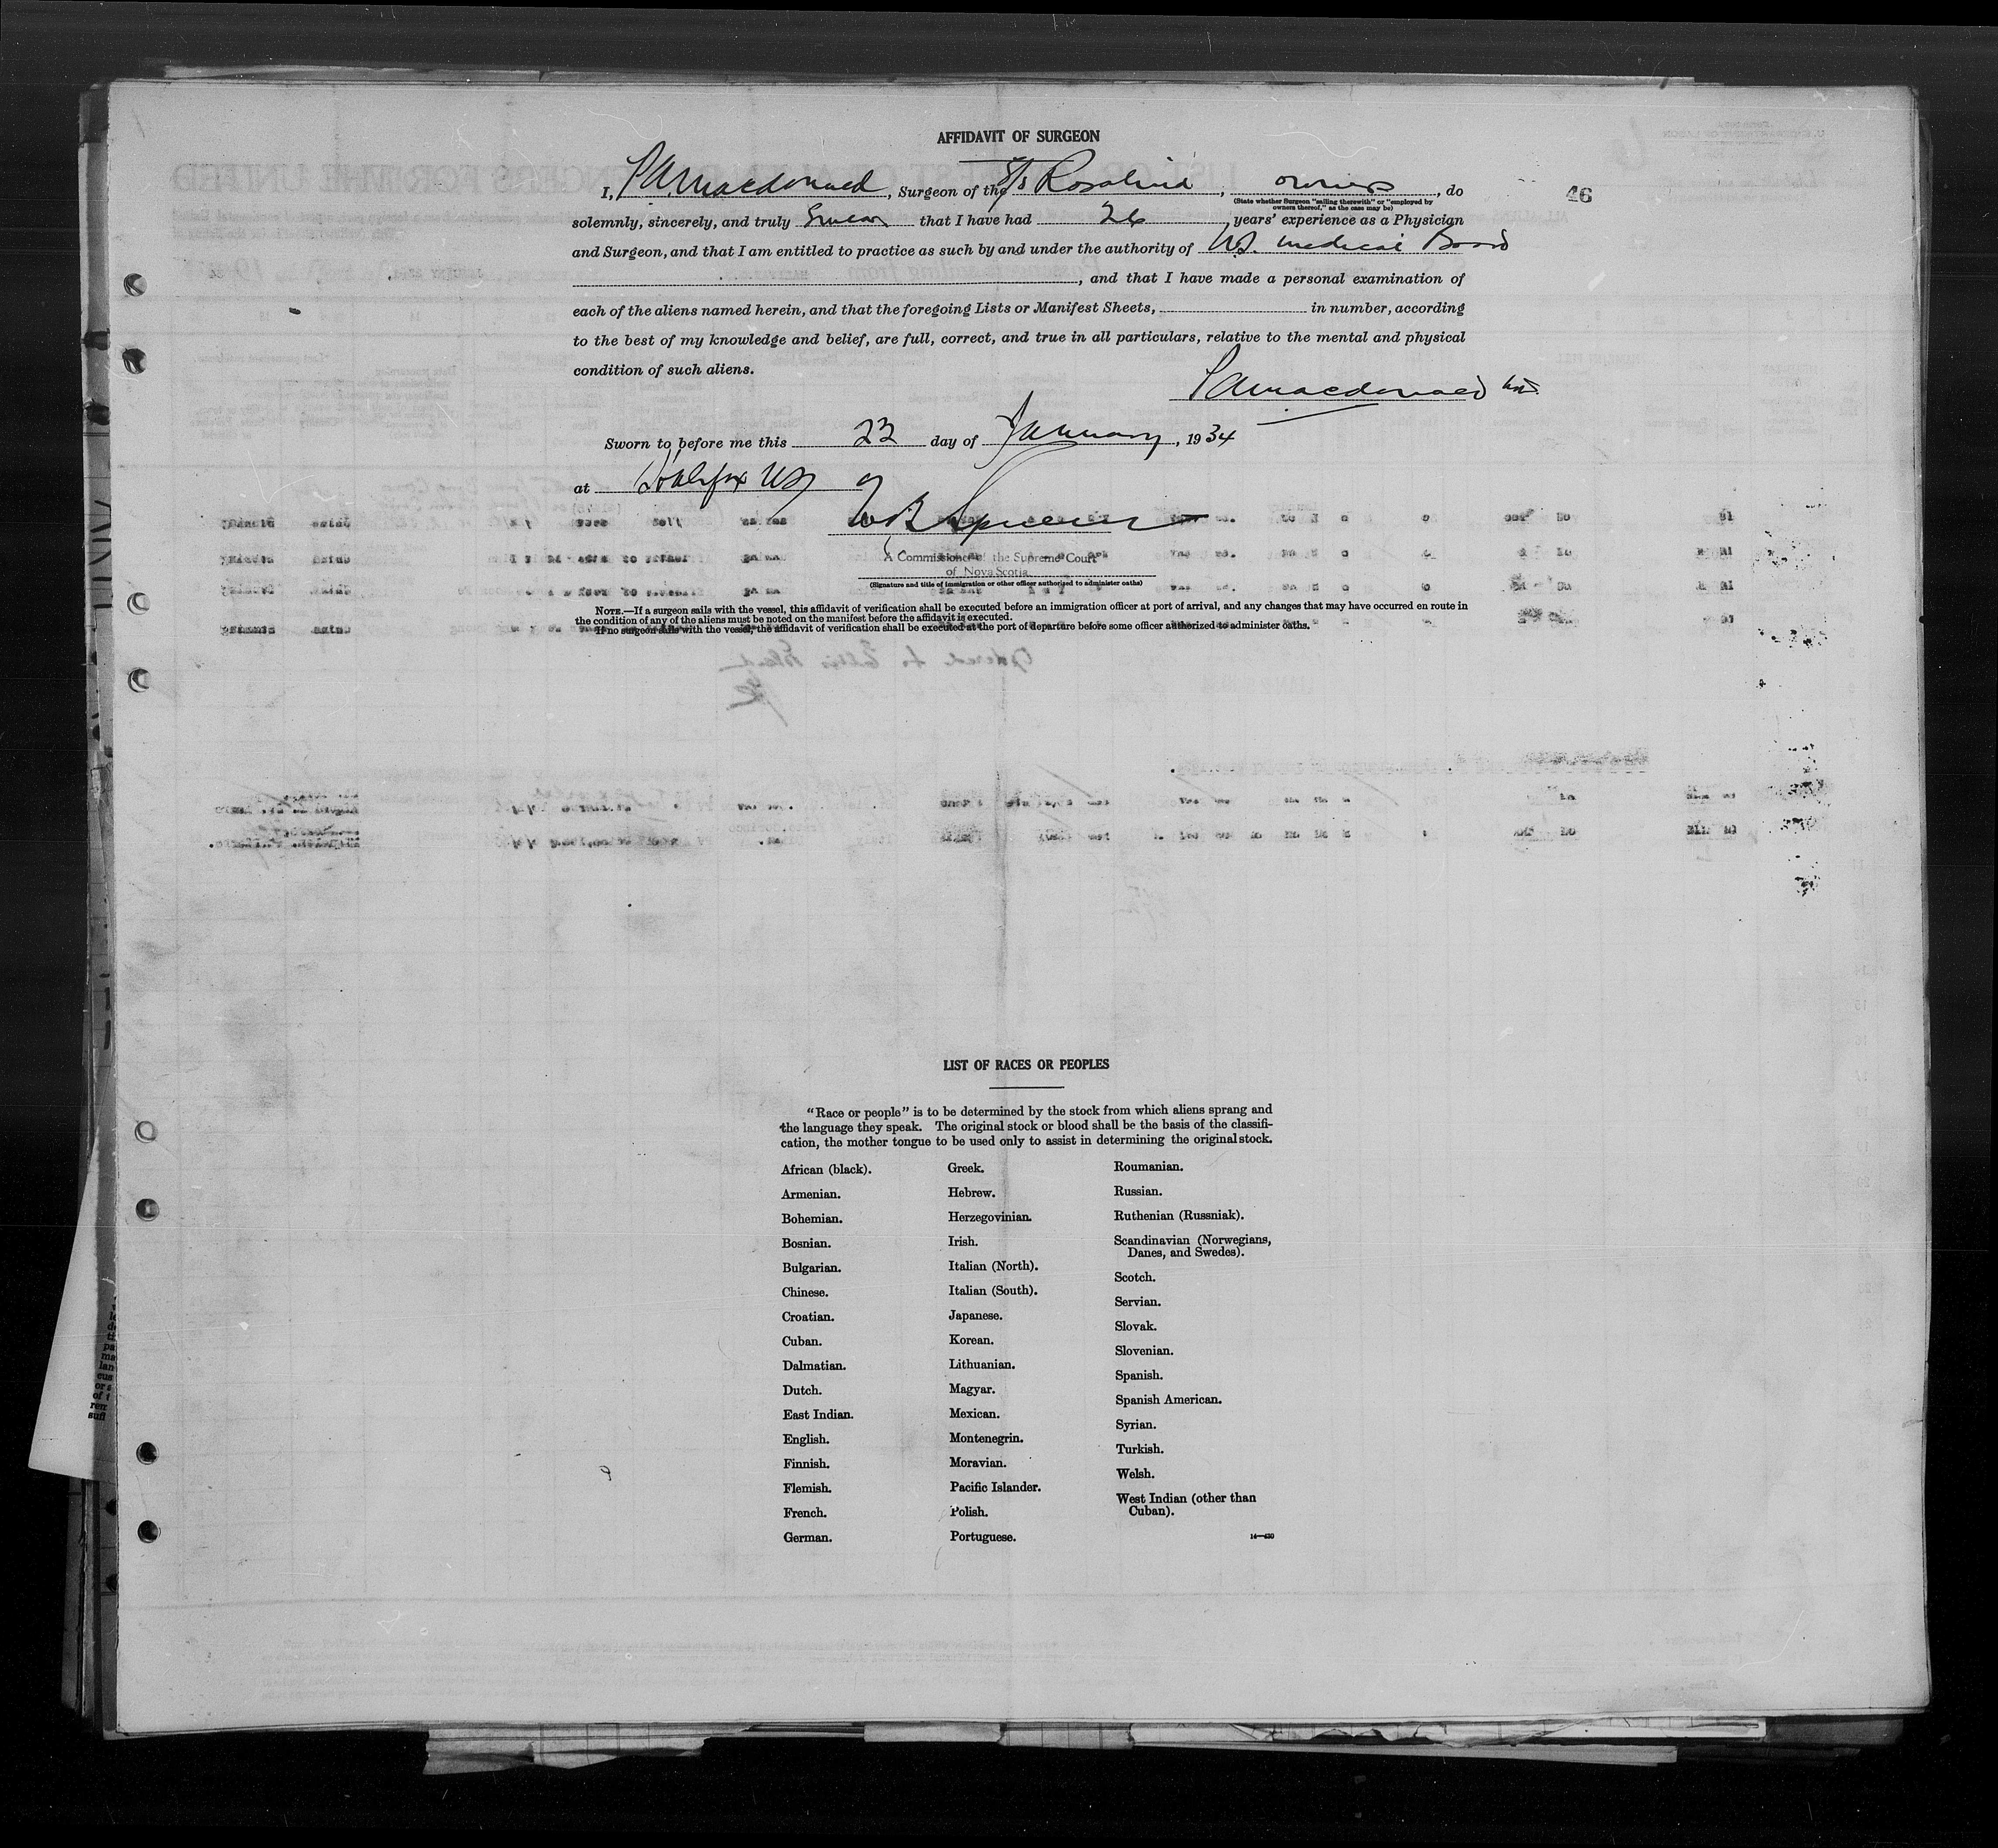 AFFIDAVIT OF SURGEON
I, P A Macdonald, Surgeon of the S/S Rosalind, owners, do
(State whether Surgeon "sailing therewith" or "employed by
owners thereof," as the case may be)
46
solemnly, sincerely, and truly Swear that I have had 26 years' experience as a Physician
and Surgeon, and that I am entitled to practice as such by and under the authority of N.S. Medical Board
, and that I have made a personal examination of
each of the aliens named herein, and that the foregoing Lists or Manifest Sheets, in number, according
to the best of my knowledge and belief, are full, correct, and true in all particulars, relative to the mental and physical
condition of such aliens.
P A Macdonald MD.
Sworn to before me this 22 day of January, 1934
at Halifax NS
A Commissioner of the Supreme Court
of Nova Scotia
(Signature and title of immigration or other officer authorized to administer oaths)
NOTE.—If a surgeon sails with the vessel, this affidavit of verification shall be executed before an immigration officer at port of arrival, and any changes that may have occurred en route in
the condition of any of the aliens must be noted on the manifest before the affidavit is executed.
If no surgeon sails with the vessel, the affidavit of verification shall be executed at the port of departure before some officer authorized to administer oaths.
LIST OF RACES OR PEOPLES
"Race or people" is to be determined by the stock from which aliens sprang and
the language they speak. The original stock or blood shall be the basis of the classifi-
cation, the mother tongue to be used only to assist in determining the original stock.
African (black).
Armenian.
Bohemian.
Bosnian.
Bulgarian.
Chinese.
Croatian.
Cuban.
Dalmatian.
Dutch.
East Indian.
English.
Finnish.
Flemish.
French.
German.
Greek.
Hebrew.
Herzegovinian.
Irish.
Italian (North).
Italian (South).
Japanese.
Korean.
Lithuanian.
Magyar.
Mexican.
Montenegrin.
Moravian.
Pacific Islander.
Polish.
Portuguese.
Roumanian.
Russian.
Ruthenian (Russniak).
Scandinavian (Norwegians,
Danes, and Swedes).
Scotch.
Servian.
Slovak.
Slovenian.
Spanish.
Spanish American.
Syrian.
Turkish.
Welsh.
West Indian (other than
Cuban).
14—430